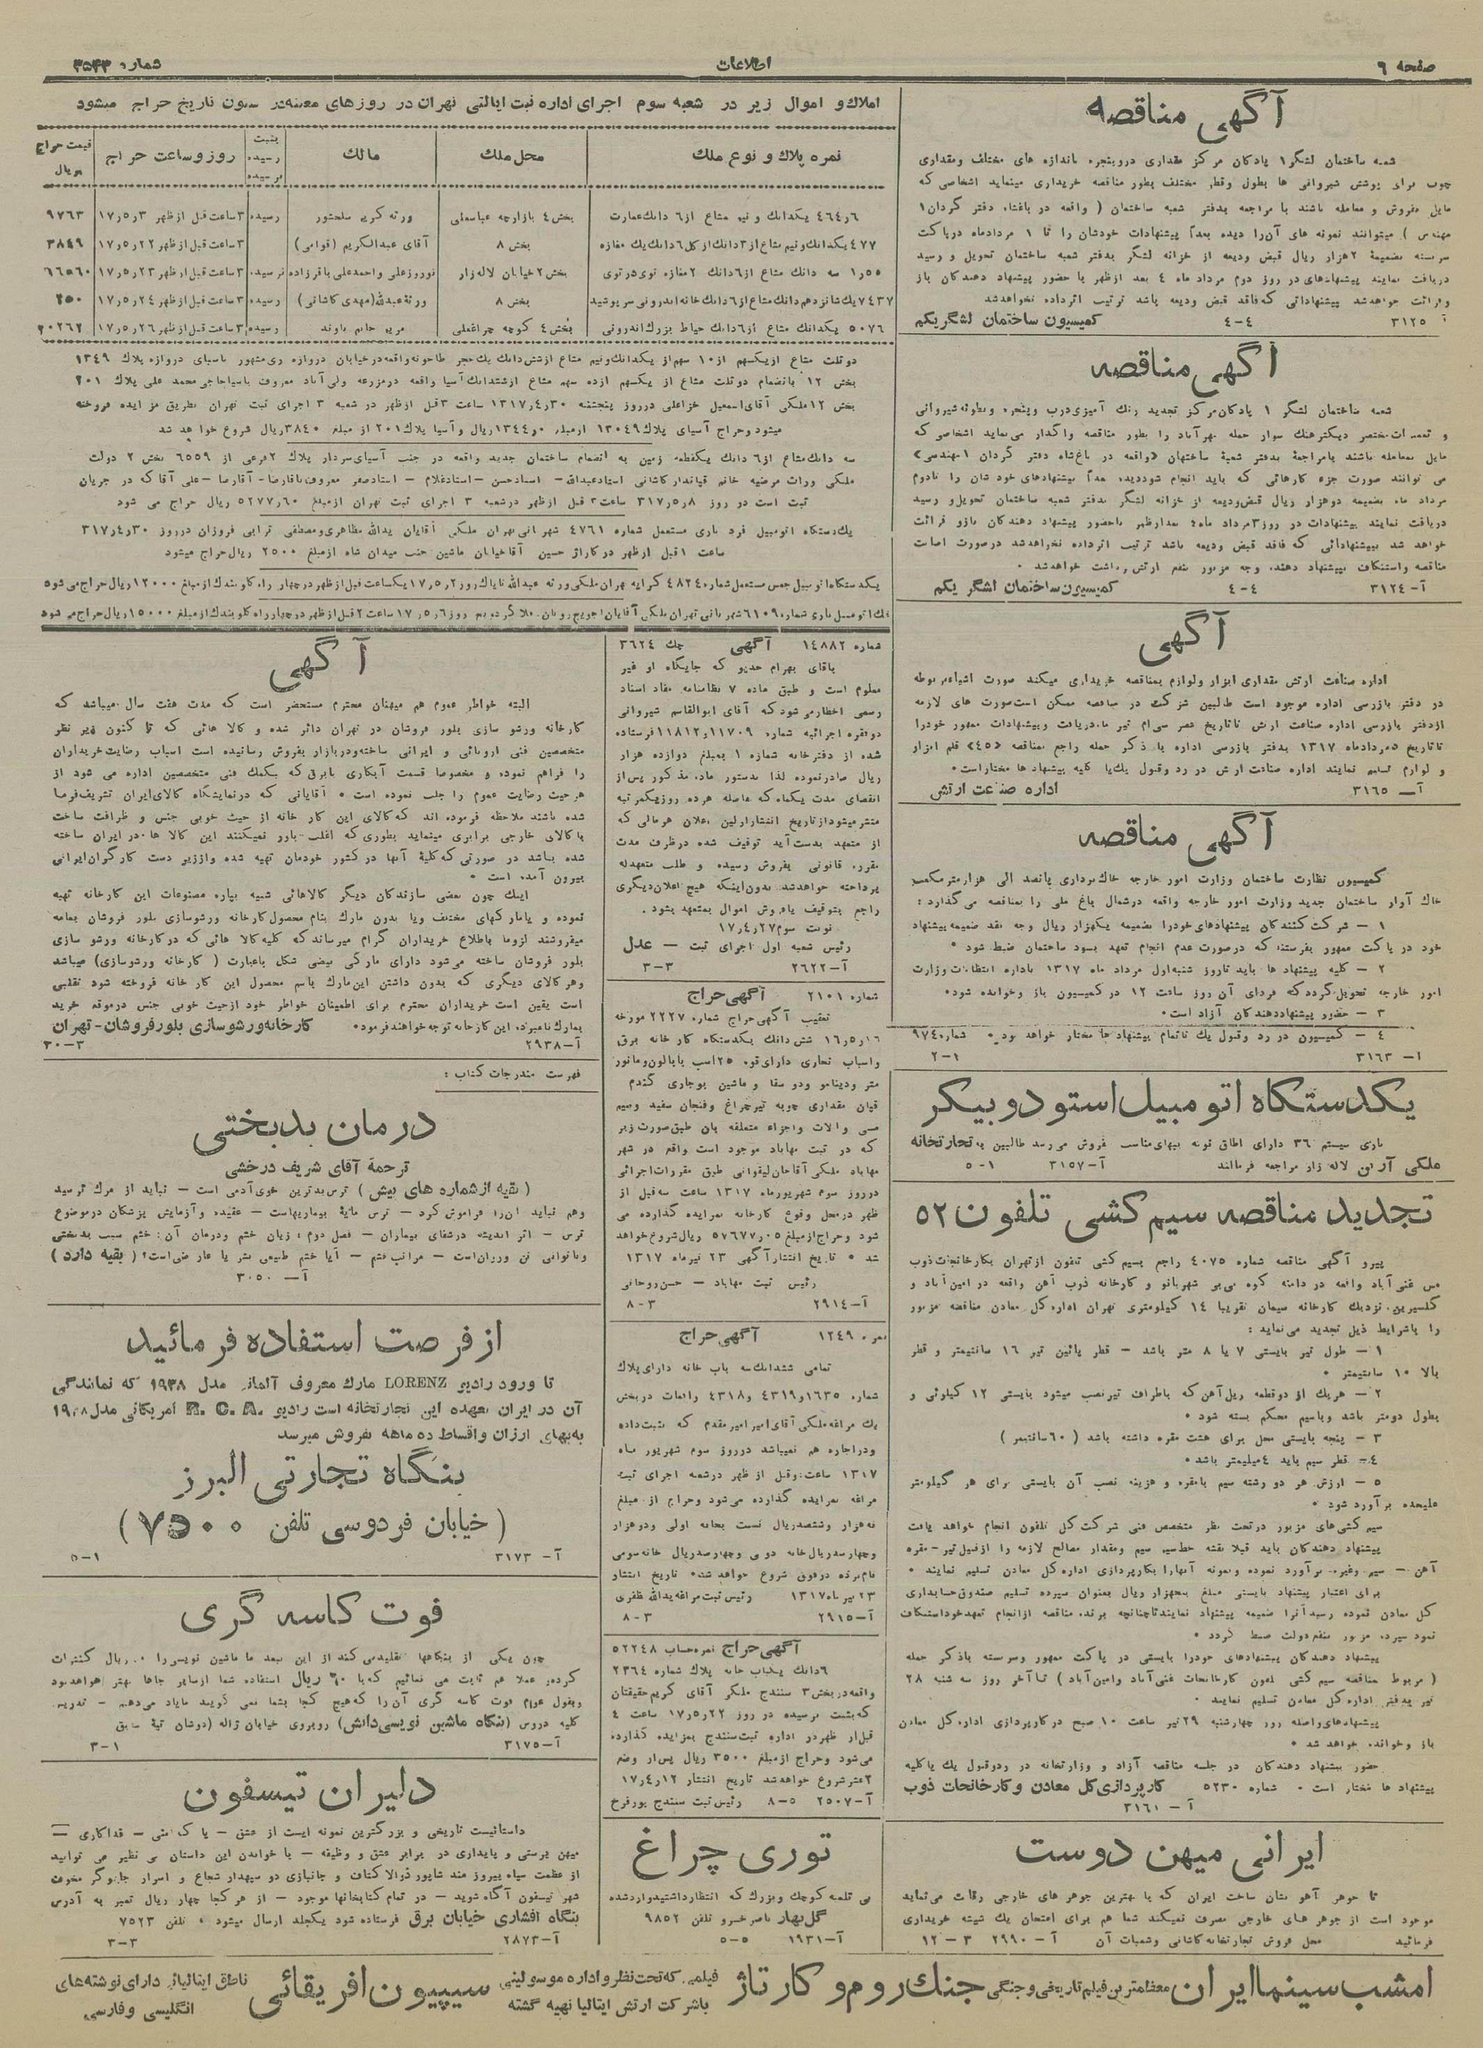 صفحه ۶
اطلاعات
شماره ۳۵۴۳
آگهی مناقصه
شعبه ساختمان لشگر ۱ پادگان مرکز مقداری دروپنجره باندازه های مختلف ومقداری
چوب برای پوشش شیروانی ها بطول وقطر مختلف بطور مناقصه خریداری مینماید اشخاصی که
مایل بفروش و معامله باشند با مراجعه بدفتر شعبه ساختمان ( واقعه در باغشاه دفتر گردان ۱
مهندس ) میتوانند نمونه های آن را دیده بعداً پیشنهادات خودشان را تا ۱ مردادماه دریاکت
سربسته بضمیمه ۲ هزار ریال قبض ودیعه از خزانه لشگر بدفتر شعبه ساختمان تحویل و رسید
دریافت نمایند پیشنهادهای در روز دوم مرداد ماه ۴ بعد ازظهر با حضور پیشنهاد دهندگان باز
وقرائت خواهدشد پیشنهاداتی که فاقد قبض ودیعه باشد ترتیب اثرداده نخواهدشد
آ ۳۱۲۵ ۴-۴ کمیسیون ساختمان لشگریکم
آگهی مناقصه
شعبه ساختمان لشگر ۱ پادگان مرکز تجدید رنگ آمیزی درب وپنجره وبطونه شیروانی
و تعمیرات مختصر دیگر هنگ سوار حمله مهرآباد را بطور مناقصه واگذار می نماید اشخاصی که
مایل بمعامله باشند بامراجعه بدفتر شعبه ساختمان «واقعه در باغ شاه دفتر گردان ۱ مهندسی»
می توانند صورت جزء کارهائی که باید انجام شوددیده بعداً پیشنهادهای خودشان را تادوم
مرداد ماه بضمیمه دوهزار ریال قبض ودیعه از خزانه لشگر بدفتر شعبه ساختمان تحویل و رسید
دریافت نمایند پیشنهادات در روز ۳ مرداد ماه ۴ بعدازظهر باحضور پیشنهاد دهندگان باز و قرائت
خواهد شد پیشنهاداتی که فاقد قبض ودیعه باشد ترتیب اثرداده نخواهدشد درصورت اصابت
مناقصه واستنکاف پیشنهاد دهنده وجه مزبور بنفع ارتش برداشت خواهدشد
آ-۳۱۲۴ ۴-۴ کمیسیون ساختمان لشگر یکم
آگهی
اداره صناعت ارتش مقداری ابزار ولوازم بمناقصه خریداری میکند صورت اشیاء مربوطه
در دفتر بازرسی اداره موجود است طالبین شرکت در مناقصه ممکن است صورت های لازمه
ازدفتر بازرسی اداره صناعت ارتش تا تاریخ عصر سی ام تیر ماه دریافت وپیشنهادات ممهور خودرا
تا تاریخ ۵ مردادماه ۱۳۱۷ بدفتر بازرسی اداره با ذکر جمله راجع بمناقصه «۴۵» قلم ابزار
و لوازم تسلیم نمایند اداره صناعت ارتش در رد وقبول یک یا کلیه پیشنهاد ها مختار است
آ— ۳۱۶۵ اداره صناعت ارتش
آگهی مناقصه
کمیسیون نظارت ساختمان وزارت امور خارجه خاک برداری پانصد الی هزارمترمکعب
خاک آوار ساختمان جدید وزارت امور خارجه واقعه درشمال باغ ملی را بمناقصه می گذارد :
۱ — شرکت کنندگان پیشنهادهای خودرا بضمیمه یکهزار ریال وجه نقد ضمیمه پیشنهاد
خود در پاکت ممهور بفرستند که درصورت عدم انجام تعهد بسود ساختمان ضبط شود
۲ — کلیه پیشنهاد ها باید تا روز شنبه اول مرداد ماه ۱۳۱۷ باداره انتظامات وزارت
امور خارجه تحویل گردد که فردای آن روز ساعت ۱۲ در کمیسیون باز وخوانده شود
۳ — حضور پیشنهاددهندگان آزاد است
۴ — کمیسیون در رد وقبول یک یا تمام پیشنهاد ها مختار خواهد بود شماره ۹۷۴
آ— ۳۱۶۳ ۱-۲
یکدستگاه اتومبیل استودوبیکر
باری سیستم ۳۶ دارای اطاق نونه ببهای مناسب فروش می رسد طالبین به تجارتخانه
ملکی آرین لاله زار مراجعه فرمایند آ-۳۱۵۷ ۱-۵
تجدید مناقصه سیم کشی تلفون ۵۲
پیرو آگهی مناقصه شماره ۴۰۷۵ راجع بسیم کشی تلفون ازتهران بکارخانجات ذوب
مس غنی آباد واقعه در دامنه کوه بی بی شهربانو و کارخانه ذوب آهن واقعه در امین آباد و
گلیسیرین نزدیک کارخانه سیمان تقریبا ۱۴ کیلومتری تهران اداره کل معادن مناقصه مزبور
را باشرایط ذیل تجدید می نماید :
۱ — طول تیر بایستی ۷ یا ۸ متر باشد — قطر پائین تیر ۱۶ سانتیمتر و قطر
بالا ۱۰ سانتیمتر
۲ — هریک از دوقطعه ریل آهن که باطراف تیر نصب میشود بایستی ۱۲ کیلوئی و
بطول دومتر باشد وباسیم محکم بسته شود
۳ — پنجه بایستی محل برای هشت مقره داشته باشد (۶۰ سانتیمتر)
۴- قطر سیم باید ۴ میلیمتر باشد
۵ — ارزش هر دو رشته سیم بامقره و هزینه نصب آن بایستی برای هر کیلومتر
علیحده برآورد شود
سیم کشی های مزبور درتحت نظر متخصص فنی شرکت کل تلفون انجام خواهد یافت
پیشنهاد دهندگان باید قبلا نقشه خط سیر سیم ومقدار مصالح لازمه را ازقبیل تیر - مقره
آهن — سیم وغیره برآورد نموده ونمونه آنهارا بکارپردازی اداره کل معادن تسلیم نمایند
برای اعتبار پیشنهاد بایستی مبلغ پنجهزار ریال بعنوان سپرده تسلیم صندوق حسابداری
کل معادن نموده رسید آنرا ضمیمه پیشنهاد نمایند تا چنانچه برنده مناقصه ازانجام تعهد خوداستنکاف
نمود سپرده مزبور بنفع دولت ضبط گردد
پیشنهاد دهندگان پیشنهادهای خودرا بایستی در پاکت ممهور وسربسته باذکر جمله
( مربوط بمناقصه سیم کشی تلفون کارخانجات غنی آباد وامین آباد ) تا آخر روز سه شنبه ۲۸
تیر بدفتر اداره کل معادن تسلیم نمایند
پیشنهادهای واصله روز چهارشنبه ۲۹ تیر ساعت ۱۰ صبح در کارپردازی اداره کل معادن
باز وخوانده خواهد شد
حضور پیشنهاد دهندگان در جلسه مناقصه آزاد و وزارتخانه در ردوقبول یک یا کلیه
پیشنهاد ها مختار است شماره ۵۲۳۰ کارپردازی کل معادن و کارخانجات ذوب
آ — ۳۱۶۱
ایرانی میهن دوست
تا جوهر آهو نشان ساخت ایران که با بهترین جوهر های خارجی رقابت می نماید
موجود است از جوهر های خارجی مصرف نمیکند شما هم برای امتحان یک شیشه خریداری
فرمائید محل فروش تجارتخانه کاشانی وشعبات آن آ— ۲۹۹۰ ۳ — ۱۲
املاک و اموال زیر در شعبه سوم اجرای اداره ثبت ایالتی تهران در روزهای معینه در ستون تاریخ حراج میشود
نمره پلاک و نوع ملک محل ملک مالک بثبت رسیده نرسیده روز و ساعت حراج قیمت حراج بریال
۴۶۴٫۶ یکدانک و نیم مشاع از ۶ دانک عمارت بخش ۴ بازارچه عباسعلی ورثه کریم سلحشور رسیده ۳ ساعت قبل از ظهر ۱۷٫۵٫۳ ۹۷۶۳
۴۷۷ یکدانک ونیم مشاع از ۳ دانک از کل ۶ دانک یک مغازه بخش ۸ آقای عبدالکریم (قوامی) ۳ ساعت قبل از ظهر ۱۷٫۵٫۲۲ ۳۸۴۹
۱٫۵۵ سه دانک مشاع از ۶ دانک ۲ مغازه توی در توی بخش ۲ خیابان لاله زار نوروزعلی و احمدعلی باقرزاده نرسیده ۳ ساعت قبل از ظهر ۱۷٫۵٫۲۳ ۶۶۵۶۰
۷۴۳۷ یک شانزدهم دانک مشاع از ۶ دانک خانه اندرونی سرپوشیده بخش ۸ ورثه عبدالله (مهدی کاشانی) رسیده ۳ ساعت قبل از ظهر ۱۷٫۵٫۲۴ ۲۵۰
۵۰۷۶ یکدانک مشاع از ۶ دانک حیاط بزرگ اندرونی بخش ۴ کوچه چراغعلی مریم خانم باوند رسیده ۳ ساعت قبل از ظهر ۱۷٫۵٫۲۶ ۲۰۲۶۲
دو ثلث مشاع از یکسهم از ۱۰ سهم از یکدانک ونیم مشاع ازشش دانک یک حجر طاحونه واقعه درخیابان دروازه ری مشهور باسیای دروازه پلاک ۱۳۴۹
بخش ۱۲ بانضمام دوثلث مشاع از یکسهم ازده سهم مشاع ازششدانک آسیا واقعه درمزرعه ولی آباد معروف باسیاحاجی محمد علی پلاک ۲۰۱
بخش ۱۲ ملکی آقای اسمعیل خزاعلی درروز پنجشنبه ۱۳۱۷٫۴٫۳۰ ساعت ۳ قبل ازظهر در شعبه ۳ اجرای ثبت تهران بطریق مزایده فروخته
میشود وحراج آسیای پلاک ۱۳۰۴۹ ازمبلغ ۱۳۴۴۰ ریال وآسیا پلاک ۲۰۱ از مبلغ ۳۸۴۰ ریال شروع خواهد شد
سه دانک مشاع از ۶ دانک یکقطعه زمین به انضمام ساختمان جدید واقعه در جنب آسیای سردار پلاک ۲ فرعی از ۶۵۵۹ بخش ۲ دولت
ملکی وراث مرضیه خانم قیاندار کاشانی استادعبدالله - استادحسن - استادغلام - استادصفر معروف باقارضا - آقارضا - علی آقا که در جریان
ثبت است در روز ۳۱۷٫۵٫۸ ساعت ۳ قبل ازظهر درشعبه ۳ اجرای ثبت تهران ازمبلغ ۵۲۷۷٫۶۰ ریال حراج می شود
یک دستگاه اتومبیل فرد باری مستعمل شماره ۴۷۶۱ شهربانی تهران ملکی آقایان یدالله مظاهری ومصطفی ترابی فروزان درروز ۳۱۷٫۴٫۳۰
ساعت ۱ قبل ازظهر در کاراژ حسین آقا خیابان ماشین جنب میدان شاه ازمبلغ ۲۵۰۰ ریال حراج میشود
شماره ۱۴۸۸۲ آگهی چک ۳۶۲۴
باقای بهرام خدیو که جایگاه او غیر
معلوم است و طبق ماده ۷ نظامنامه مفاد اسناد
رسمی اخطار می شود که آقای ابوالقاسم شیروانی
دوفقره اجرائیه شماره ۱۱۷۰۹ و ۱۱۸۱۲ فرستاده
شده از دفترخانه شماره ۱ بمبلغ دوازده هزار
ریال صادر نموده لذا بدستور ماده مذکور پس از
انقضای مدت یکماه که بفاصله هرده روز یکمرتبه
منتشر میشود از تاریخ انتشار اولین اعلان هرمالی که
از متعهد بدست آید توقیف شده درظرف مدت
مقرره قانونی بفروش رسیده و طلب متعهدله
پرداخته خواهدشد بدون اینکه هیچ اعلان دیگری
راجع بتوقیف یافروش اموال بمتعهد بشود.
نوبت سوم ۱۷٫۴٫۲۷
رئیس شعبه اول اجرای ثبت — عدل
آ-۲۶۲۲ ۳-۳
شماره ۲۱۰۱ آگهی حراج
تعقیب آگهی حراج شماره ۲۲۲۷ مورخه
۱۶٫۵٫۱۶ شش دانک یکدستگاه کارخانه برق
واسباب نجاری دارای قوه ۲۵ اسب بابالون ومانور
متر ودینامو ودو سقا و ماشین بوجاری گندم
قپان مقداری چوبه تیرچراغ وفنجان سفید وسیم
مسی والات واجزاء متعلقه بان طبق صورت زیر
که در ثبت مهاباد موجود است واقع در شهر
مهاباد ملکی آقاجان لیقوانی طبق مقررات اجرائی
درروز سوم شهریورماه ۱۳۱۷ ساعت سه قبل از
ظهر درمحل وقوع کارخانه بمزایده گذارده می
شود وحراج ازمبلغ ۵۷۶۷۷٫۰۵ ریال شروع خواهد
شد تاریخ انتشار آگهی ۲۳ تیر ماه ۱۳۱۷
رئیس ثبت مهاباد — حسن روحانی
آ-۲۹۱۴ ۳-۸
نمره ۱۲۴۹ آگهی حراج
تمامی ششدانک سه باب خانه دارای پلاک
شماره ۱۶۳۵ و ۴۳۱۹ و ۴۳۱۸ واقعات دربخش
یک مراغه ملکی آقای امیر امیرمقدم که بثبت داده
ودراجاره هم نمیباشد درروز سوم شهریور ماه
۱۳۱۷ ساعت دو قبل از ظهر درشعبه اجرای ثبت
مراغه بمزایده گذارده می شود وحراج از مبلغ
نه هزار وششصدریال نسبت بخانه اولی ودوهزار
وچهارصدریال خانه دومی وچهارصدریال خانه سومی
نامبرده درفوق شروع خواهدشد تاریخ انتشار
۲۳ تیر ماه ۱۳۱۷ رئیس ثبت مراغه یدالله ظفری
آ-۲۹۱۵ ۳-۸
آگهی حراج نمره حساب ۵۲۲۴۸
۶ دانک یکباب خانه پلاک شماره ۲۳۶۴
واقعه در بخش ۳ سنندج ملکی آقای کریم حقیقتان
که بثبت نرسیده در روز ۱۷٫۵٫۲۲ ساعت ۴
قبل از ظهر در اداره ثبت سنندج بمزایده گذارده
می شود وحراج ازمبلغ ۳۵۰۰ ریال پس از وضع
شروع خواهدشد تاریخ انتشار ۱۷٫۴٫۱۲
آ-۲۵۰۷ ۵-۸ رئیس ثبت سنندج پورفرخ
توری چراغ
بی تلمبه کوچک وبزرگ که انتظار داشتید وارد شده
گل بهار ناصرخسرو تلفن ۹۸۵۲
آ-۱۹۳۱ ۵-۵
آگهی
البته خواطر عموم هم میهنان محترم مستحضر است که مدت هفت سال میباشد که
کارخانه ورشو سازی بلور فروشان در تهران دائر شده و کالا هائی که تا کنون زیر نظر
متخصصین فنی اروپائی و ایرانی ساخته ودربازار بفروش رسانیده است اسباب رضایت خریداران
را فراهم نموده و مخصوصا قسمت آبکاری بابرق که بکمک فنی متخصصین اداره می شود از
هرحیث رضایت عموم را جلب نموده است آقایانی که درنمایشگاه کالای ایران تشریف فرما
شده باشند ملاحظه فرموده اند که کالای این کار خانه از حیث خوبی جنس و ظرافت ساخت
با کالای خارجی برابری مینماید بطوری که اغلب باور نمیکنند این کالا ها در ایران ساخته
شده باشد در صورتی که کلیه آنها در کشور خودمان تهیه شده واززیر دست کارگران ایرانی
بیرون آمده است
اینک چون بعضی سازندگان دیگر کالاهائی شبیه بپاره مصنوعات این کارخانه تهیه
نموده و بامارکهای مختلف ویا بدون مارک بنام محصول کارخانه ورشوسازی بلور فروشان بعامه
میفروشند لزوما باطلاع خریداران گرام میرساند که کلیه کالا هائی که درکارخانه ورشو سازی
بلور فروشان ساخته می شود دارای مارکی بیضی شکل باعبارت ( کارخانه ورشوسازی) میباشد
وهرکالای دیگری که بدون داشتن این مارک باسم محصول این کارخانه فروخته شود تقلبی
است یقین است خریداران محترم برای اطمینان خواطر خود ازحیث خوبی جنس درموقع خرید
بمارک نامبرده این کارخانه توجه خواهند فرمود کارخانه ورشوسازی بلورفروشان - تهران
آ-۲۹۳۸ ۳-۳۰
فهرست مندرجات کتاب :
درمان بدبختی
ترجمه آقای شریف درخشی
( بقیه از شماره های پیش ) ترس بدترین خوی آدمی است — نباید از مرگ ترسید
وهم نباید آن را فراموش کرد — ترس مایه بیماریهاست — عقیده وآزمایش پزشکان درموضوع
ترس — اثر اندیشه درشفای بیماران — فصل دوم: زیان خشم ودرمان آن: خشم سبب بدبختی
وناتوانی تن وروان است — مراتب خشم — آیا خشم طبیعی بشر یا عارضی است؟ ( بقیه دارد )
آ— ۳۰۵۰
از فرصت استفاده فرمائید
تا ورود رادیو LORENZ مارک معروف آلمانی مدل ۱۹۳۸ که نمایندگی
آن در ایران بعهده این تجارتخانه است رادیو R. C. A. آمریکائی مدل ۱۹۳۸
به بهای ارزان واقساط ده ماهه بفروش میرسد
بنگاه تجارتی البرز
( خیابان فردوسی تلفن ۷۵۰۰ )
آ— ۳۱۷۳ ۱-۵
فوت کاسه گری
چون یکی از بنگاهها تقلید می کند از این ببعد ما ماشین نویسی را ریال کنترات
کرده و عملا هم ثابت می نمائیم که با ریال استفاده شما ازسایر جاها بهتر خواهدبود
وبقول عوام فوت کاسه گری آن را که هیچ کجا بشما نمی گویند مایاد میدهیم — تدریس
کلیه دروس (بنگاه ماشین نویسی دانش) روبروی خیابان ژاله (دوشان تپه سابق)
آ-۳۱۷۵ ۱-۳
دلیران تیسفون
داستانیست تاریخی و بزرگترین نمونه ایست از عشق — پاکدامنی — فداکاری —
میهن پرستی و پایداری در برابر عشق و وظیفه — با خواندن این داستان بی نظیر می توانید
از عظمت سپاه پیروز مند شاپور ذوالاکتاف و جانبازی دو سپهدار شجاع و اسرار جادوگر مخوف
شهر تیسفون آگاه شوید — در تمام کتابخانها موجود — از هر کجا چهار ریال تمبر به آدرس
بنگاه افشاری خیابان برق فرستاده شود یکجلد ارسال میشود تلفن ۷۵۲۳
آ-۲۸۷۳ ۳-۳
امشب سینما ایران معظمترین فیلم تاریخی و جنگی جنگ روم و کارتاژ فیلمی که تحت نظر و اداره موسولینی باشرکت ارتش ایتالیا تهیه گشته سیپیون افریقائی ناطق ایتالیائی دارای نوشته های انگلیسی و فارسی